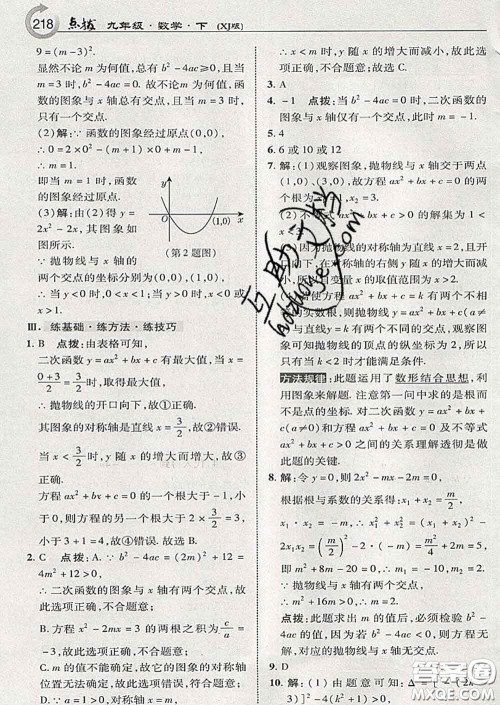 218 点拨 九年级·数学·下 (XJ版)
9=(m-3)².
显然不论 m 为何值,总有 b²-4ac≥0,
且当 m=3 时, b²-4ac=0,所以该二次
函数的图象与 x 轴总有交点,且当 m=3 时,
只有一个交点.
(2)解:∵函数的图象经过原点(0,0),
∴0=2×0²-(m+3)×0+m.
∴m=1.
即当 m=1 时,函
数的图象经过原点.
(3)解:由(2)得 y=
2x²-2x,其图象如
图所示.
(1,0)
(第 2 题图)
∵抛物线与 x 轴的
两个交点的坐标分别为(0,0),(1,0),
∴当 0<x<1 时,y<0.
Ⅲ. 练基础·练方法·练技巧
1. B 点拨:由表格可知,
二次函数 y=ax²+bx+c 有最大值,当 x
=(0+3)/2=3/2 时,取得最大值.
∴抛物线的开口向下,故①正确.
其图象的对称轴是直线 x=3/2,故②错误.
当 x<3/2 时,y 随 x 的增大而增大,故③
正确.
方程 ax²+bx+c=0 的一个根大于-1,
小于 0,则方程的另一个根大于 3/2×2=3,
小于 3+1=4,故④错误.
2. C 点拨:A.∵b²-4ac=(2m)²+12=
4m²+12>0,
∴二次函数的图象与 x 轴有两个交点,
故此选项正确,不合题意;
B. 方程 x²-2mx=3 的两根之积为
-3,故此选项正确,不合题意;
C. m 的值不能确定,故它的图象的对称轴
位置无法确定,故此选项错误,符合题意;
D.∵a=1>0,对称轴为直线 x=m,
∴x<m 时,y 随 x 的增大而减小,故此选
项正确,不合题意;故选 C.
3. A
4. -1 点拨:当 b²-4ac=0 时,二次函数的
图象与 x 轴仅有一个交点,故 m=-1.
5. 4
6. 6 或 10 或 12
7. 解:(1)观察图象,抛物线与 x 轴交于两点
(1,0),(3,0),故方程 ax²+bx+c=0 的
bx+c>0 的解集为 1<x
抛物线的对称轴为直线 x=2,且开
口向下,在对称轴的右侧 y 随 x 的增大而
x 的取值范围为 x>2.
图象可知抛物线的顶点的纵坐标为 2,所
以当 k<2 时才能满足条件.
方法规律:此题运用了数形结合思想,利
用图象来解题.注意第一问中求的是根而
不是点的坐标,搞清楚对二次函数 y=
ax²+bx+c(a≠0)与方程 ax²+bx+
c(a≠0)之间的关系理解透彻是做出
此题的关键.
8. 解:令 y=0,则 2x²-mx-2m=0,
根据根与系数的关系得:x₁+x₂=m/2,
x₁·x₂=-m.∵x₁²+x₂²=(x₁+x₂)²-
2x₁x₂=(m/2)²+2m=5,
即 m²+8m-20=0,∴m=2 或 m=-10.
∵抛物线与 x 轴有两个交点,
∴m²+16m>0,∴m=2.
点拨:此题求出 m 的值后,必须检验 b²
-4ac 的值,否则易出错,当 b²-4ac<0
时,对应的抛物线与 x 轴无交点.
9. D
10. 解:(1)由题意可知:Δ=[-(2k
3)]²-4(k²+1)>0,